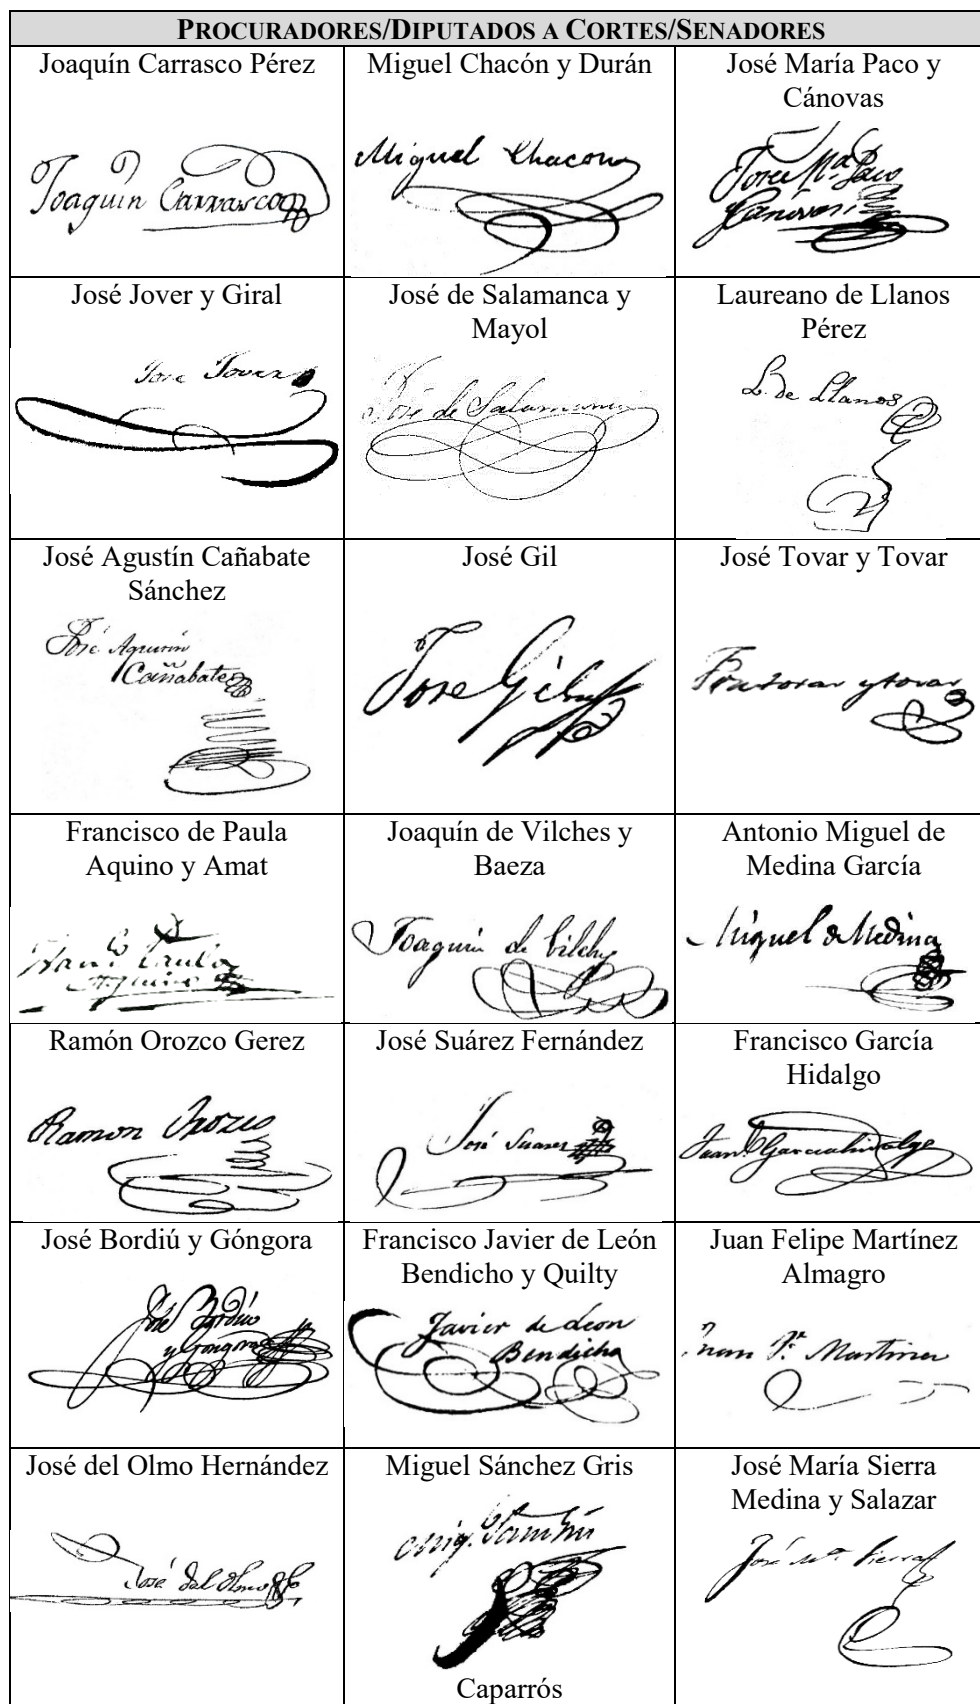 PROCURADORES/DIPUTADOS A CORTES/SENADORES
Joaquín Carrasco Pérez
Joaquin Carrasco
Miguel Chacón y Durán
Miguel Chacon
José María Paco y
Cánovas
Jose M.ª Paco
Canovas
José Jover y Giral
Jose Jover
José de Salamanca y
Mayol
José de Salamanca
Laureano de Llanos
Pérez
L. de Llanos
José Agustín Cañabate
Sánchez
José Agustin
Cañabate
José Gil
Jose Gil
José Tovar y Tovar
tovar y tovar
Francisco de Paula
Aquino y Amat
Paula
Aquino
Joaquín de Vilches y
Baeza
Joaquin de Vilches
Antonio Miguel de
Medina García
Miguel de Medina
Ramón Orozco Gerez
Ramon Orozco
José Suárez Fernández
José Suarez
Francisco García
Hidalgo
Fran.co Garciahidalgo
José Bordiú y Góngora
José Bordiu
y Gongora
Francisco Javier de León
Bendicho y Quilty
Javier de Leon
Bendicho
Juan Felipe Martínez
Almagro
Juan F.e Martinez
José del Olmo Hernández
José del Olmo
Miguel Sánchez Gris
Mig.l Sanchez
Caparrós
José María Sierra
Medina y Salazar
José M.ª Sierra